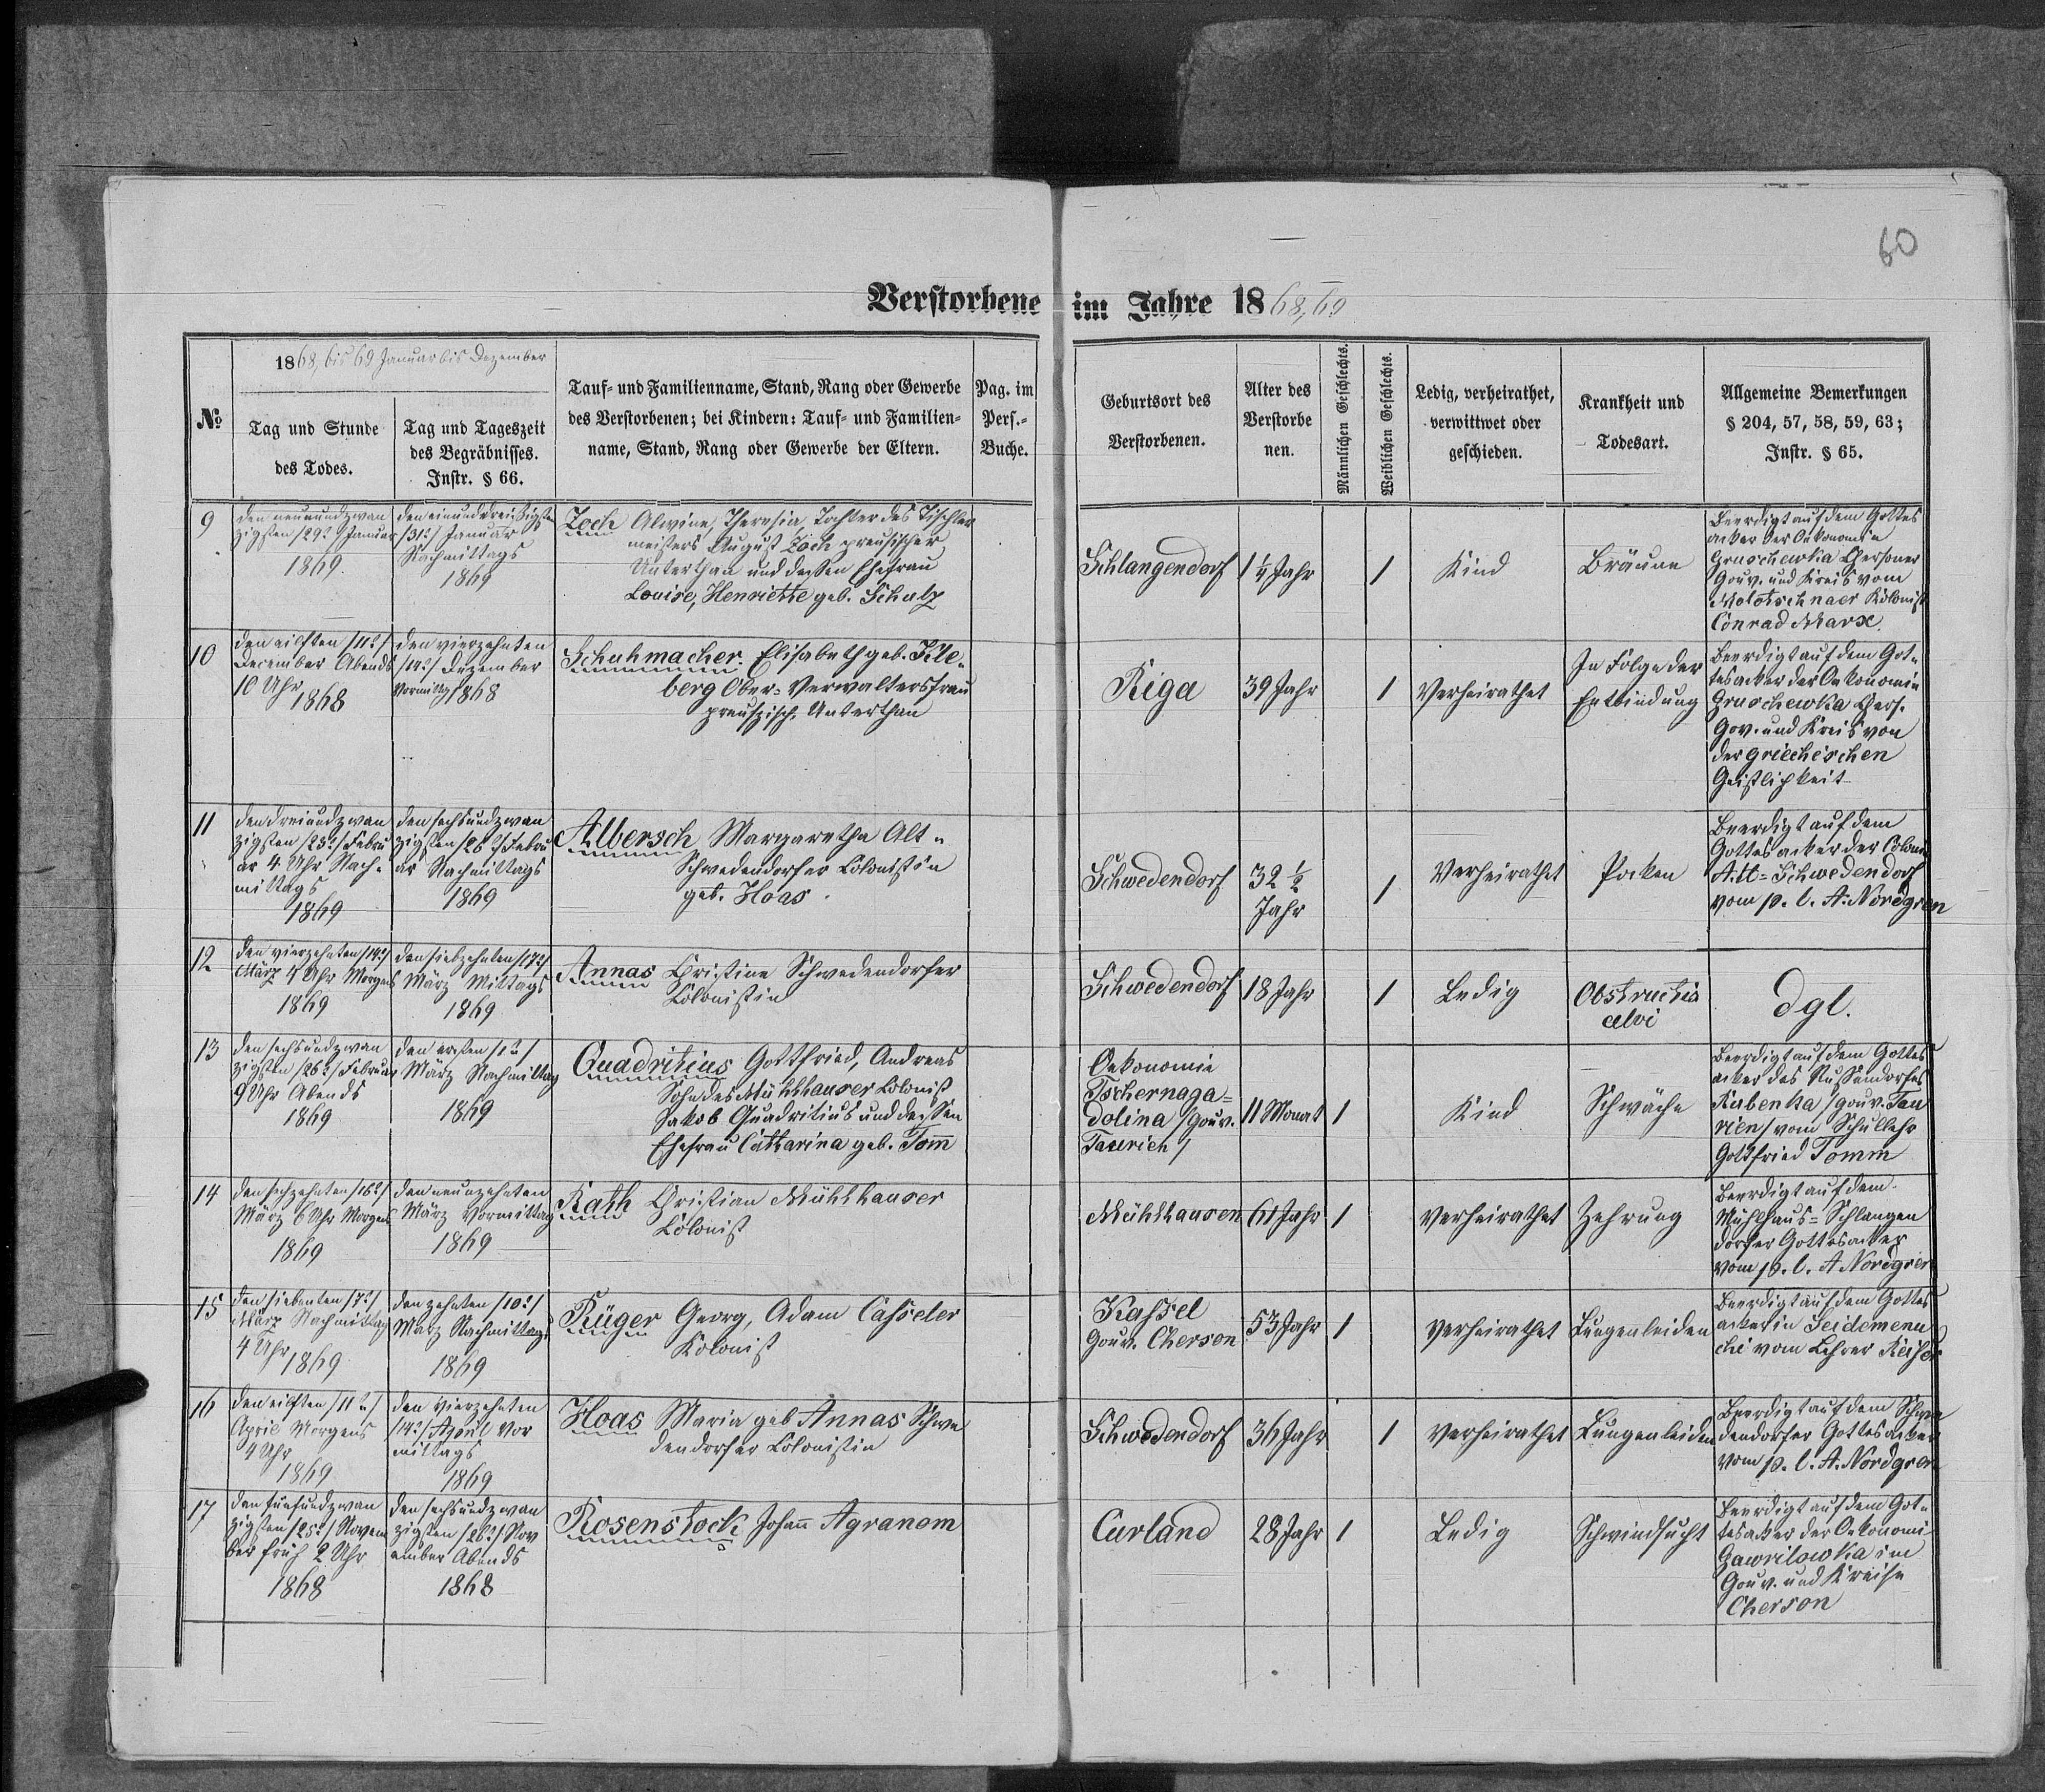 60
Verstorbene im Jahre 1868,69
№
1868, bis 69 Januar bis Dezember
Tag und Stunde
des Todes.
Tag und Tageszeit
des Begräbnisses.
Instr. § 66.
Tauf- und Familienname, Stand, Rang oder Gewerbe
des Verstorbenen; bei Kindern: Tauf- und Familien-
name, Stand, Rang oder Gewerbe der Eltern.
Pag. im
Pers.-
Buche.
Geburtsort des
Verstorbenen.
Alter des
Verstorbe
nen.
Männlichen Geschlechts.
Weiblichen Geschlechts.
Ledig, verheirathet,
verwittwet oder
geschieden.
Krankheit und
Todesart.
Allgemeine Bemerkungen
§ 204, 57, 58, 59, 63;
Instr. § 65.
9
den neunundzwan
zigsten /29ᵗ/ Januar
1869
den einunddreißigsten
/31ᵗ/ Januar
Nachmittags
1869
Zoch Alwine, Theresia, Tochter des Tischler
meisters August Zoch preußischer
Unterthan und dessen Ehefrau
Louise, Henriette geb. Schulz
Schlangendorf
1¼ Jahr
1
Kind
Bräune
Beerdigt auf dem Gottes
acker der Oekonomie
Gruschewka Chersoner
Gouv. und Kreis vom
Molotschnaer Kolonist
Conrad Marx.
10
den eilften /11ᵗ/
December Abends
10 Uhr
1868
den vierzehnten
/14ᵗ/ Dezember
Vormittag 1868
Schuhmacher. Elisabeth geb. Kle-
berg Ober-Verwaltersfrau
preuszisch. Unterthan
Riga
39 Jahr
1
Verheirathet
In Folge der
Entbindung
Beerdigt auf dem Got-
tesacker der Oekonomie
Gruschewka Chers.
Gov. und Kreis von
der griechischen
Geistlichkeit
11
den dreiundzwan
zigsten /23ᵗ/ Febru
ar 4 Uhr Nach-
mittags
1869
den sechsundzwan
zigsten /26ᵗ/ Febru
ar Nachmittags
1869
Albersch Margaretha Alt-
Schwedendorfer Colonistin
geb. Hoas.
Schwedendorf
32 ½
Jahr
1
Verheirathet
Pocken
Beerdigt auf dem
Gottesacker der Colonie
Alt-Schwedendorf
vom p. l. A. Nordgren
12
den vierzehnten /14ᵗ/
März 4 Uhr Morgens
1869
den siebzehnten /17ᵗ/
März Mittags
1869
Annas Christine Schwedendorfer
Colonistin
Schwedendorf
18 Jahr
1
Ledig
Obstructio
alvi
dgl.
13
den sechsundzwan
zigsten /26ᵗ/ Februar
9 Uhr Abends
1869
den ersten /1ᵗ/
März Nachmittag
1869
Quadritius Gottfried, Andreas
Sohn des Mühlhauser Colonist
Jakob Quadritius und dessen
Ehefrau Catharina geb. Tom
Oekonomie
Tschernaga-
dolina /Gouv.
Taurien/
11 Monat
1
Kind
Schwäche
Beerdigt auf dem Gottes
acker des Russendorfes
Rubenka /Gouv. Tau
rien/ vom Schullehr
Gottfried Tomm
14
den sechzehnten /16ᵗ/
März 6 Uhr Morgens
1869
den neunzehnten
März Vormittag
1869
Rath Christian Mühlhauser
Colonist
Mühlhausen
61 Jahr
1
Verheirathet
Zehrung
Beerdigt auf dem
Mühlhaus-Schlangen
dorfer Gottesacker
vom p. l. A Nordgren
15
den siebenten /7ᵗ/
März Nachmittag
4 Uhr 1869
den zehnten /10ᵗ/
März Nachmittag
1869
Krüger Georg, Adam Casseler
Kolonist
Kassel
Gouv. Cherson
53 Jahr
1
Verheirathet
Lungenleiden
Beerdigt auf dem Gottes
acker in Seidemenu
chi vom Lehrer Reiser
16
den eilften /11ᵗ/
April Morgens
4 Uhr
1869
den vierzehnten
/14ᵗ/ April Vor
mittags
1869
Hoas Maria geb Annas Schwe
dendorfer Colonistin
Schwedendorf
36 Jahr
1
Verheirathet
Lungenleiden
Beerdigt auf dem Schwe
dendorfer Gottesacker
vom p. l. A. Nordgren
17
den fünfundzwan
zigsten /25ᵗ/ Novem
ber früh 2 Uhr
1868
den sechsundzwan
zigsten /26ᵗ/ Nov
ember Abends
1868
Rosenstock Johann Agranom
Curland
28 Jahr
1
Ledig
Schwindsucht
Beerdigt auf dem Got-
tesacker der Oekonomi
Gawrilowka im
Gouv. und Kreise
Cherson